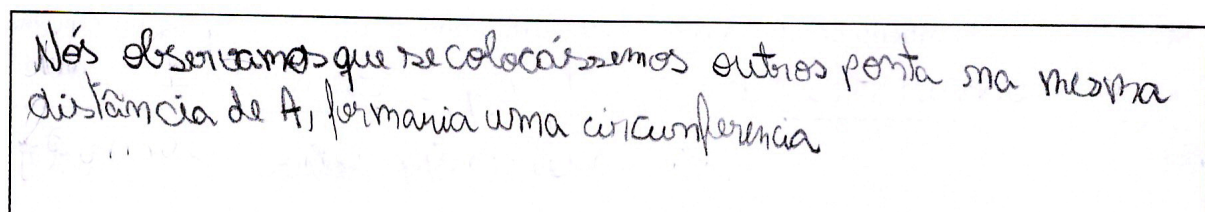 Nós observamos que se colocássemos outros ponta na mesma
distância de A, formaria uma circunferencia